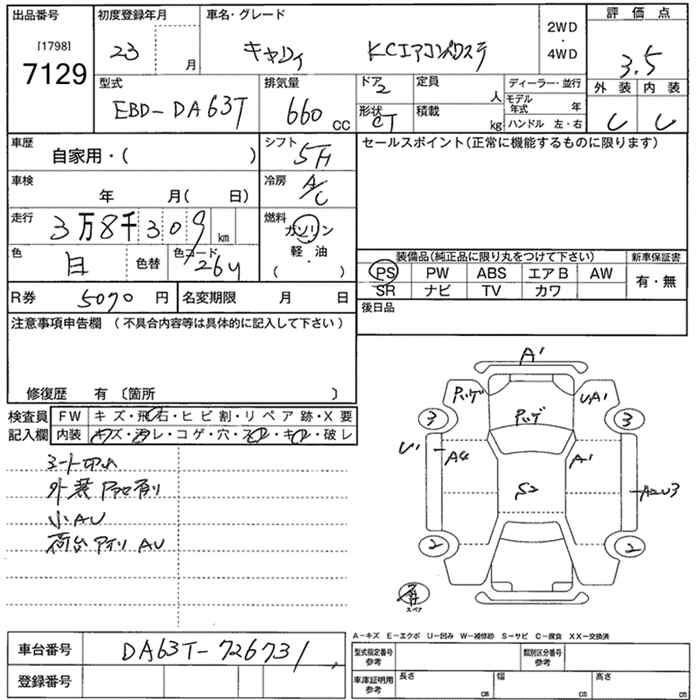 出品番号
[1798]
7129
初度登録年月
23 月
車名・グレード
キャリイ KCエアコンパワステ
2WD
・
4WD
評価点
3.5
外装 内装
型式
EBD-DA63T
排気量
660 CC
ドア
2
形状
CT
定員
人
積載
kg
ディーラー・並行
モデル年式 年
ハンドル 左・右
車歴
自家用・( )
シフト
5F
車検
年 月( 日)
冷房
A/C
走行
3万8千309 km
燃料
ガソリン
軽・油
( )
色
白
色替
色コード
26U
R券 5070 円
名変期限 月 日
セールスポイント(正常に機能するものに限ります)
装備品(純正品に限り丸をつけて下さい)
新車保証書
PS PW ABS エアB AW
SR ナビ TV カワ
有・無
後日品
注意事項申告欄 (不具合内容等は具体的に記入して下さい)
修復歴 有 〔箇所 〕
検査員
記入欄
FW キズ・飛石・ヒビ割・リペア跡・X要
内装 キズ・汚レ・コゲ・穴・スレ・キレ・破レ
外装
小AU
荷台 AU
A'
UA'
3
3
U'
A'
S2
2
2
スペア
A-キズ E-エクボ U-凹み W-補修跡 S-サビ C-腐食 XX-交換済
車台番号 DA63T-726731
登録番号
型式指定番号
参考
類別区分番号
参考
車庫証明用
参考
長さ cm
幅 cm
高さ cm